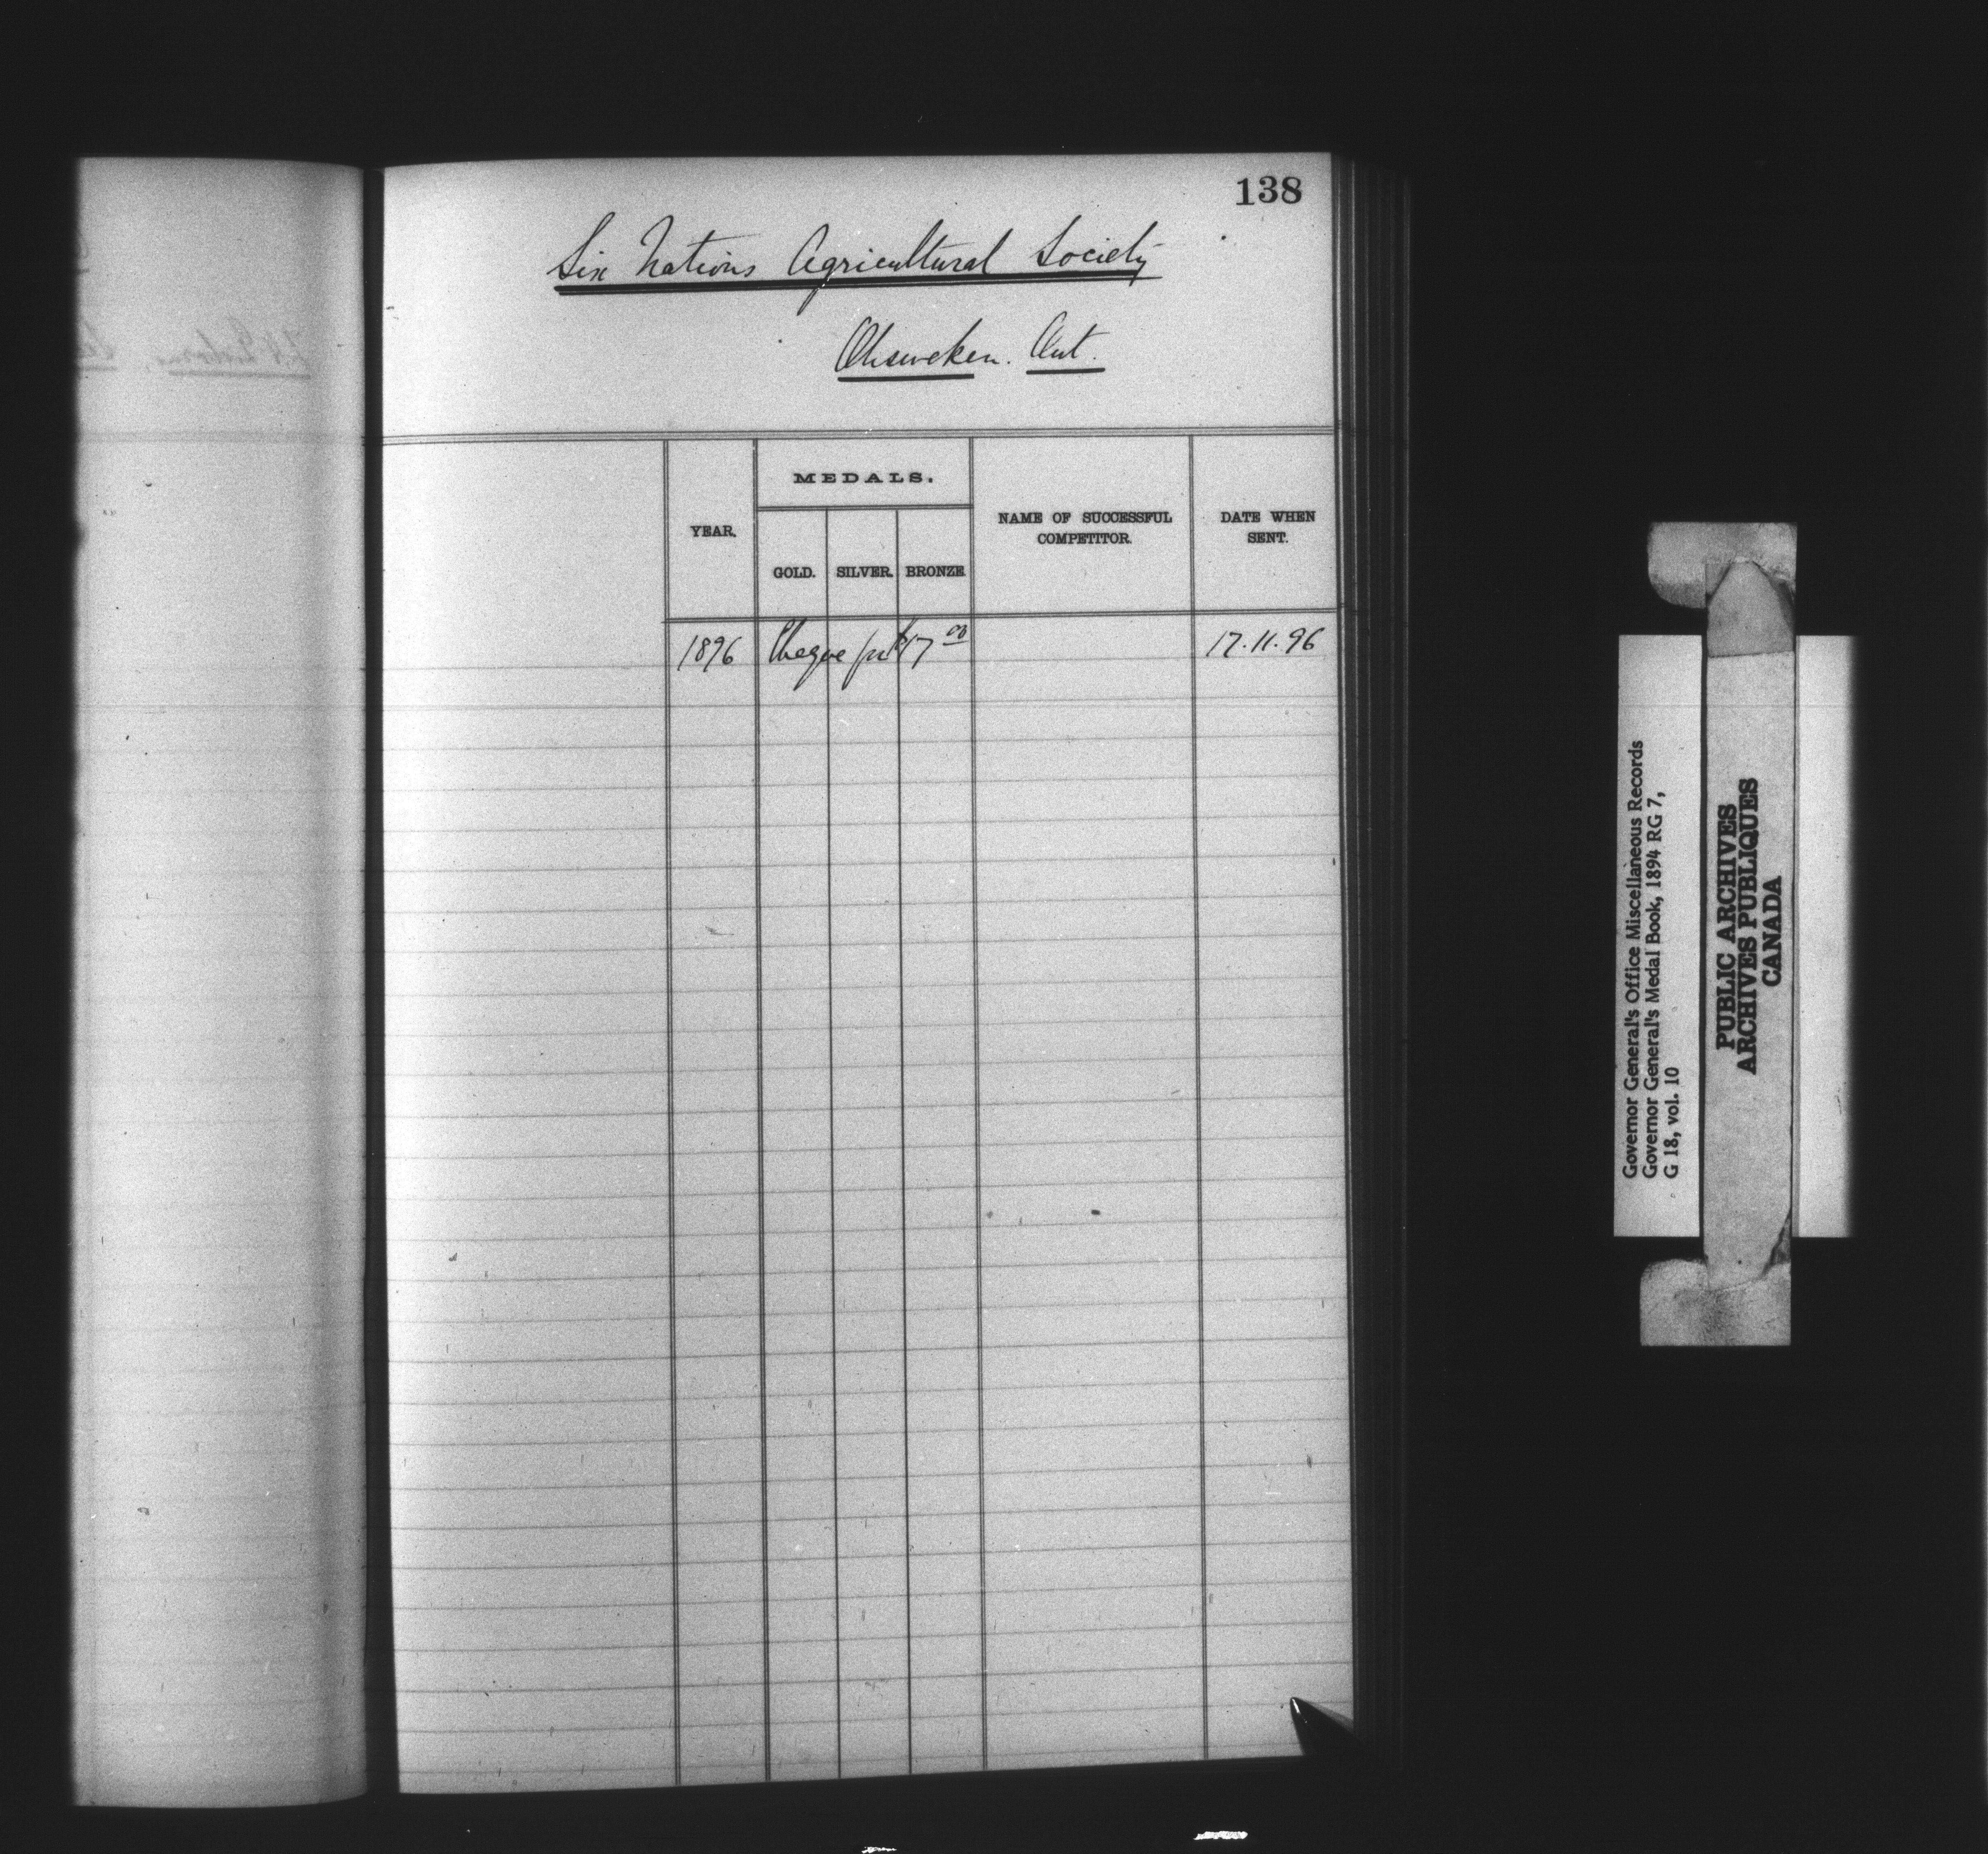 138
Six Nations Agricultural Society
Ohsweken. Ont.
MEDALS.
YEAR.
GOLD.
SILVER.
BRONZE.
NAME OF SUCCESSFUL
COMPETITOR.
DATE WHEN
SENT.
1896 Cheque for $17 00 17.11.96
Governor General's Office Miscellaneous Records
Governor General's Medal Book, 1894 RG 7,
G 18, vol. 10
PUBLIC ARCHIVES
ARCHIVES PUBLIQUES
CANADA